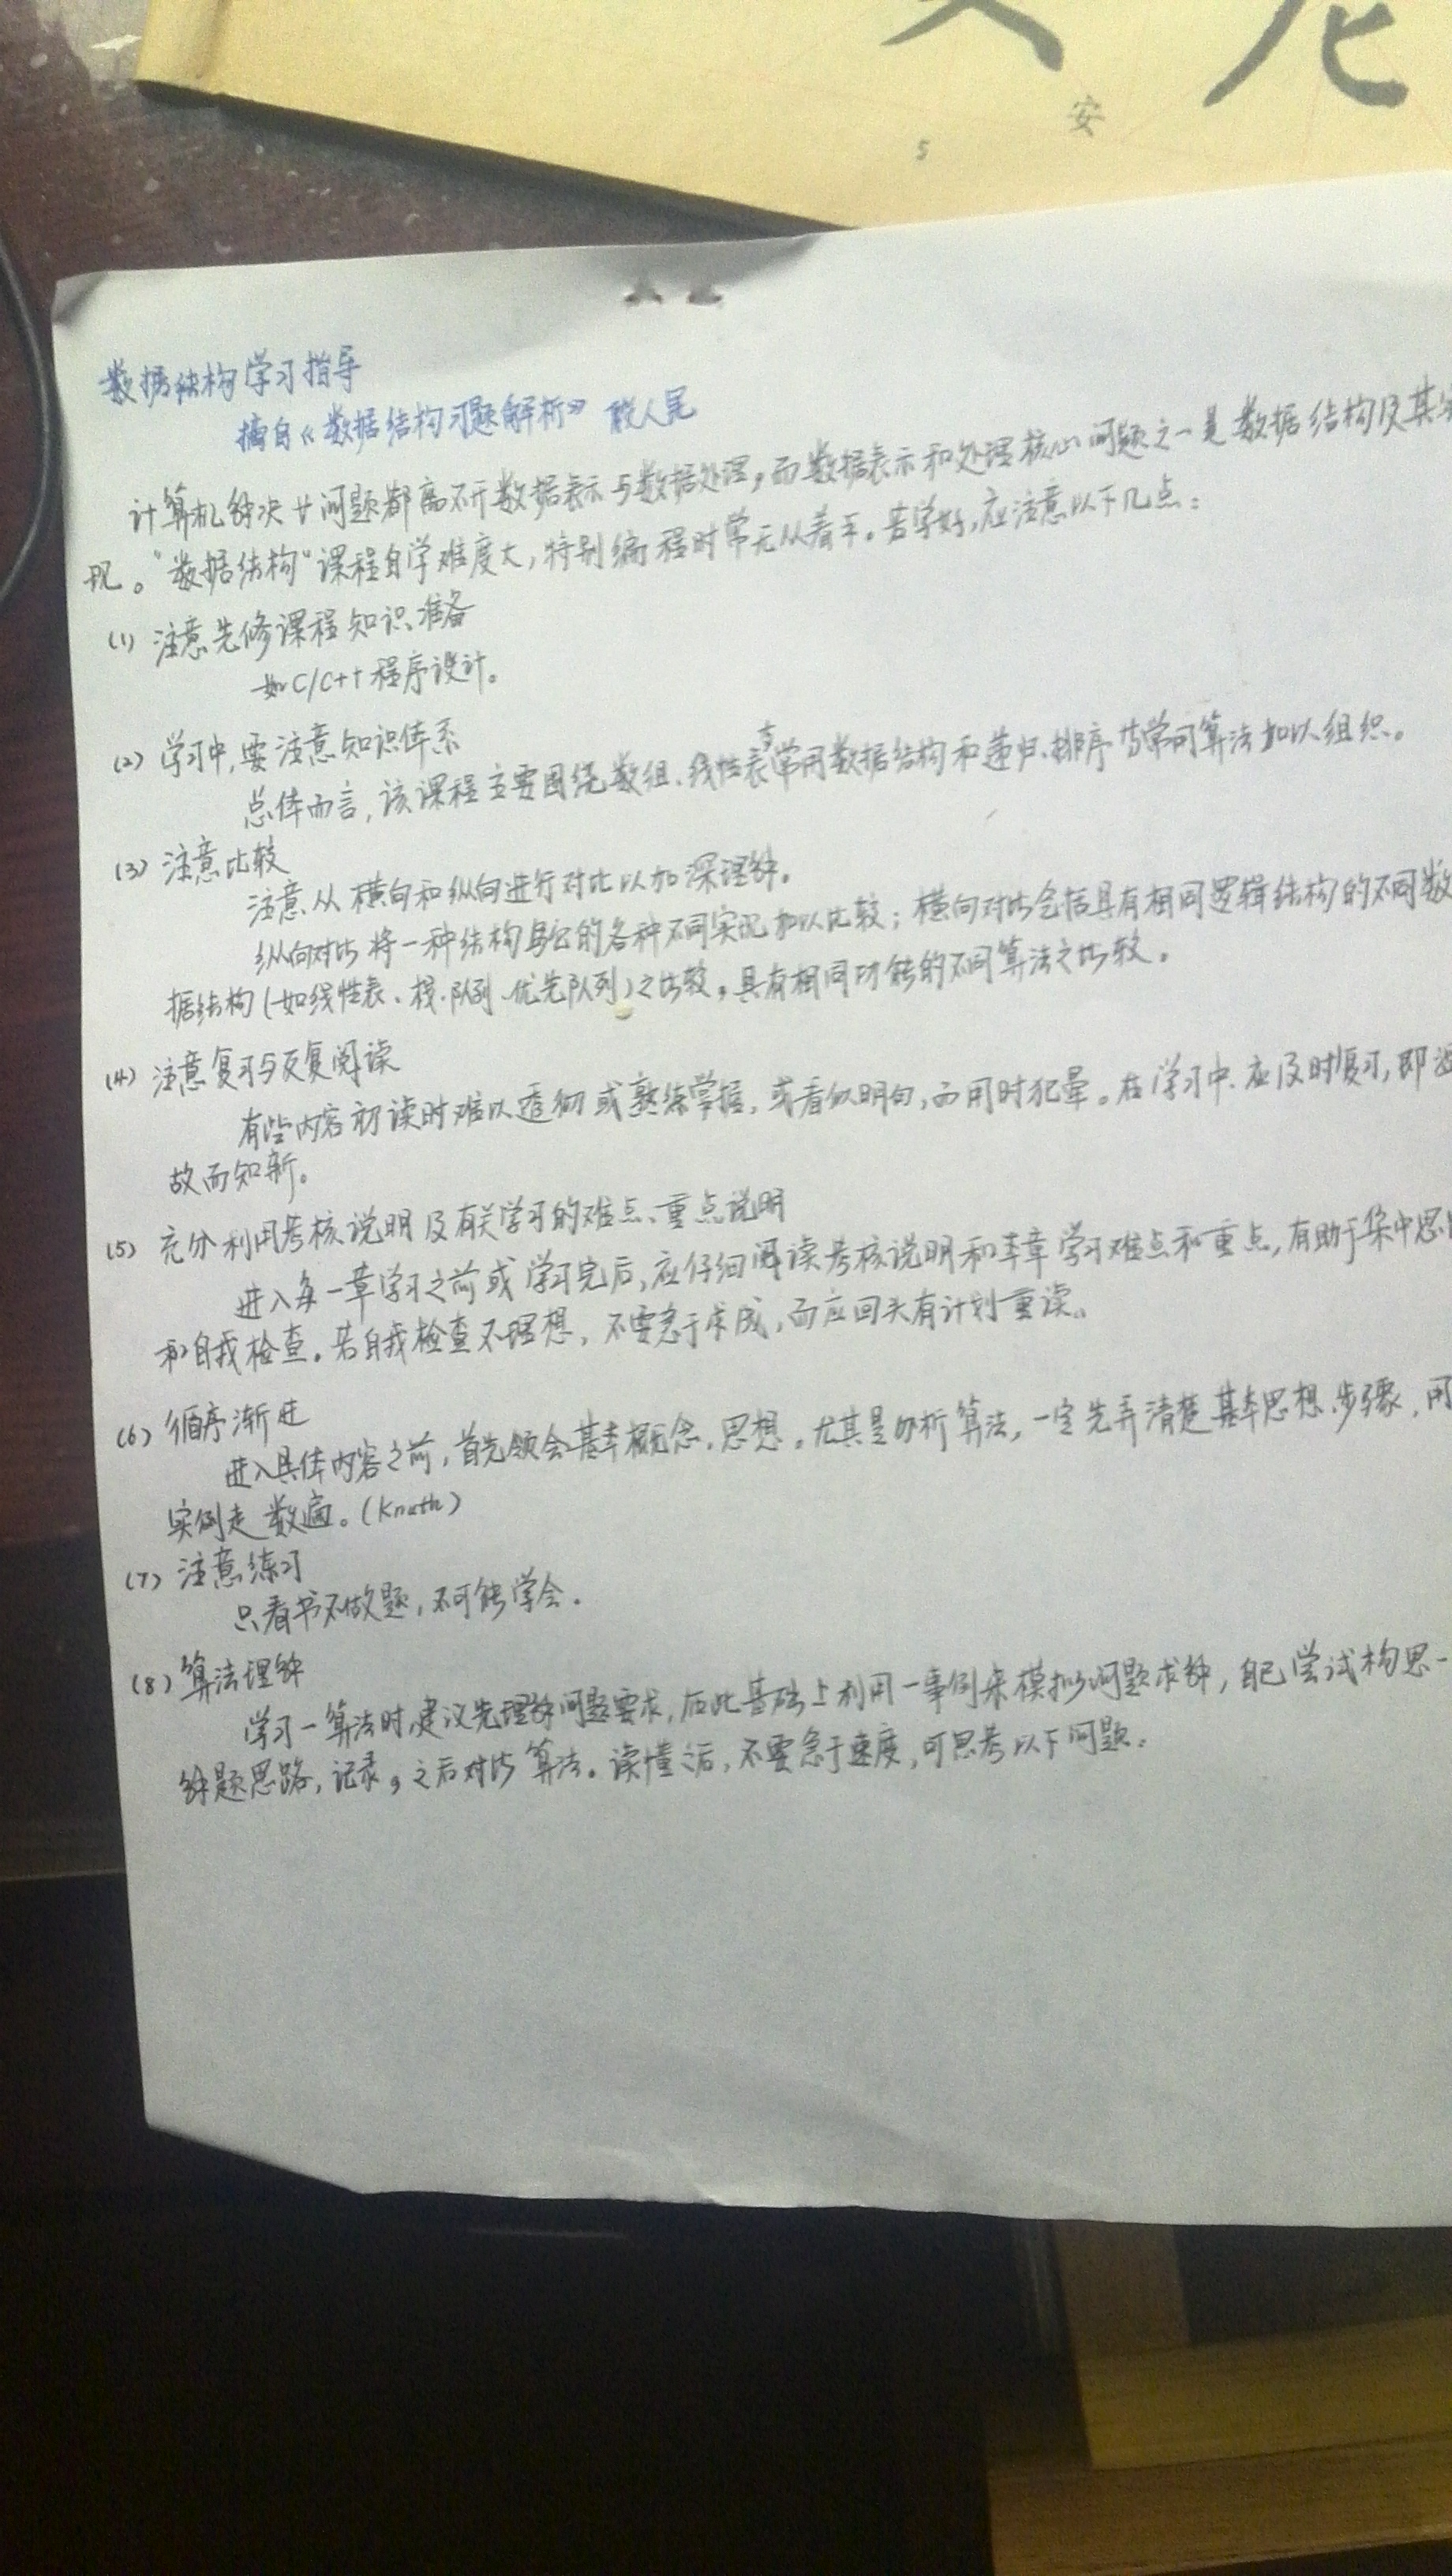 安
5
数据结构学习指导
摘自《数据结构习题解析》 殷人昆
计算机解决 问题都离不开数据表示与数据处理,而数据表示和处理核心问题之一是数据结构及其实
现。"数据结构"课程自学难度大,特别编程时常无从着手。若学好,应注意以下几点:
(1) 注意先修课程知识准备
如C/C++程序设计。
(2) 学习中,要注意知识体系
总体而言,该课程主要围绕数组、线性表 常用数据结构和递归、排序等常用算法加以组织。
(3) 注意比较
注意从横向和纵向进行对比以加深理解。
纵向对比将一种结构与它的各种不同实现加以比较;横向对比包括具有相同逻辑结构的不同数
据结构(如线性表、栈、队列、优先队列)之比较,具有相同功能的不同算法之比较。
(4) 注意复习与反复阅读
有些内容初读时难以透彻或熟练掌握,或看似明白,而用时犯晕。在学习中,应及时复习,即温
故而知新。
(5) 充分利用考核说明及有关学习的难点、重点说明
进入每一章学习之前或学习完后,应仔细阅读考核说明和本章学习难点和重点,有助于集中思
和自我检查。若自我检查不理想,不要急于求成,而应回头有计划重读。
(6) 循序渐进
进入具体内容之前,首先领会基本概念、思想。尤其是分析算法,一定先弄清楚基本思想、步骤,用
实例走数遍。(Knuth)
(7) 注意练习
只看书不做题,不可能学会。
(8) 算法理解
学习一算法时,建议先理解问题要求,后此基础上利用一事例来模拟问题求解,自己尝试构思一
解题思路,记录,之后对比算法。读懂之后,不要急于速度,可思考以下问题: